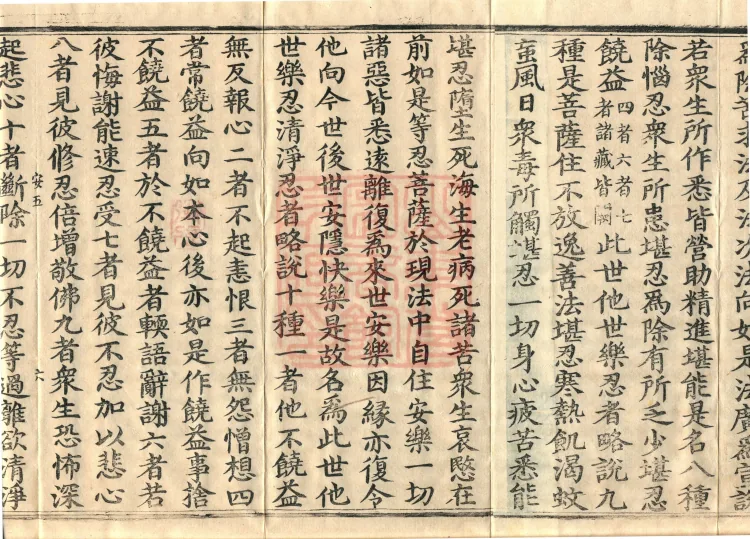 求法及法次法向如是法廣
若衆生所作悉皆營助精進堪能是名八種
除惱忍衆生所患堪忍爲除有所乏少堪忍
饒益四者六者七者諸藏皆闕此世他世樂忍者略說九
種是菩薩住不放逸善法堪忍寒熱飢渴蚊
䖟風日衆毒所觸堪忍一切身心疲苦悉能
堪忍墮生死海生老病死諸苦衆生哀愍在
前如是等忍菩薩於現法中自住安樂一切
諸惡皆悉遠離復爲來世安樂因緣亦復令
他向今世後世安隱快樂是故名爲此世他
世樂忍清淨忍者略說十種一者他不饒益
無反報心二者不起恚恨三者無怨憎想四
者常饒益向如本心後亦如是作饒益事捨
不饒益五者於不饒益者輭語辭謝六者若
彼悔謝能速忍受七者見彼不忍加以悲心
八者見彼修忍倍增敬佛九者衆生恐怖深
安五 六
起悲心十者斷除一切不忍等過離欲清淨